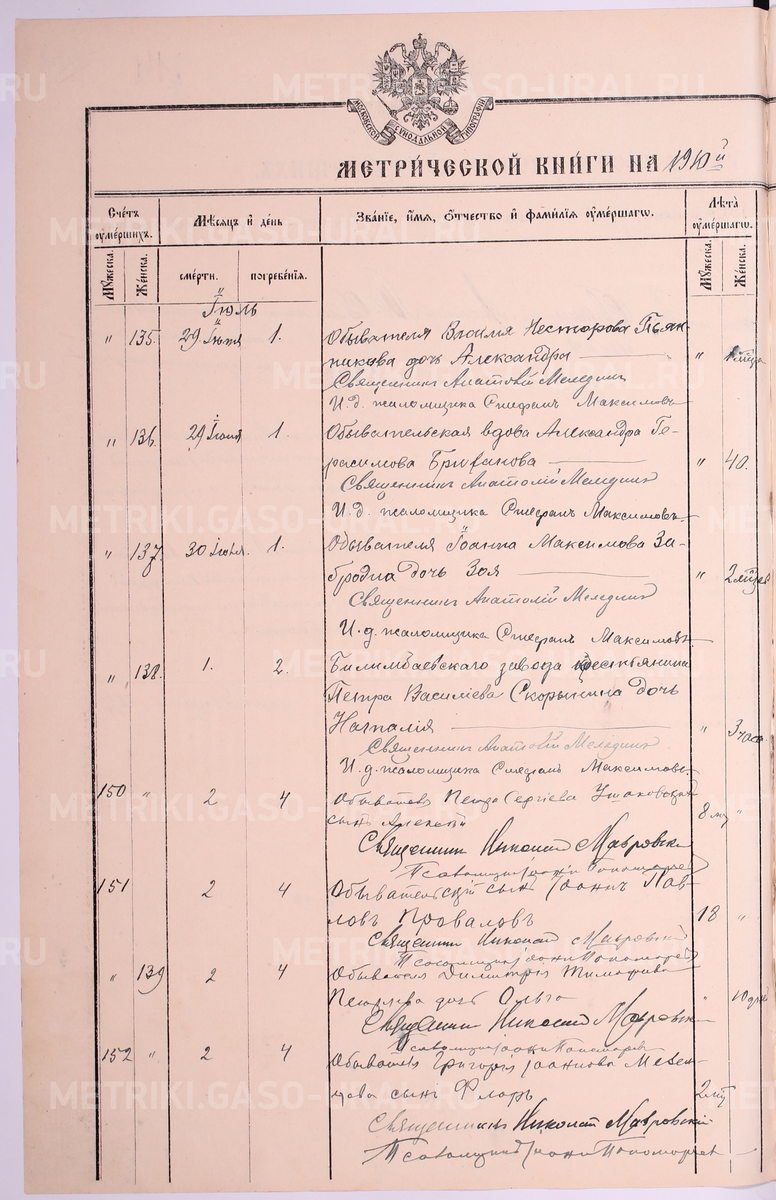 МОСКОВСКОЙ СУНОДАЛЬНОЙ ТИПОГРАФІИ
МЕТРИ́ЧЕСКОЙ КНИ́ГИ НА 1910й
Сче́тъ ᲂу҆ме́ршихъ.
Мѣ́сяцъ и҆ де́нь
Зва́нїе, и҆́мя, ѻ҆́тчество и҆ фами́лїя ᲂу҆ме́ршагѡ.
Лѣ́та ᲂу҆ме́ршагѡ.
Мꙋ́жеска.
Же́нска.
сме́рти.
погребе́нїя.
Мꙋ́жеска.
Же́нска.
Іюль
" 135. 29 Іюня 1. Обывателя Нестерова Пьян-
никова дочь Александра "
Священникъ Анатолій Меледин
И. д. псаломщика Стефанъ Максимовъ
" 136. 29 Іюня 1. Обывательская вдова Александра Ге-
расимова " 40.
Священникъ Анатолій Меледин
И. д. псаломщика Стефанъ Максимовъ
" 137. 30 Іюня. 1. Обывателя Іоанна Максимова За-
бродина дочь Зоя " 2
Священникъ Анатолій Меледин
И. д. псаломщика Стефанъ Максимовъ
" 138. 1. 2. Билимбаевскаго завода крестьянина
Петра Василіева Скорынина дочь
Наталія " 3 часа.
Священникъ Анатолій Меледин
И. д. псаломщика Стефанъ Максимовъ
150 " 2 4 Петра Сергіева
сынъ Алексѣй 8 "
Священникъ Николай Мавровскій
Псаломщикъ Іоаннъ Пономаревъ
151 2 4 Обывательскій сынъ Іоаннъ Пав-
ловъ Проваловъ 18 "
Священникъ Николай Мавровскій
Псаломщикъ Іоаннъ Пономаревъ
" 139 2 4 Обывателя Димитрія
дочь Ольга " 10 дней
Священникъ Николай Мавровскій
Псаломщикъ Іоаннъ Пономаревъ
152 " 2 4 Обывателя Григорія Іоаннова
сынъ Флоръ 2
Священникъ Николай Мавровскій
Псаломщикъ Іоаннъ Пономаревъ
METRIKI.GASO-URAL.RU